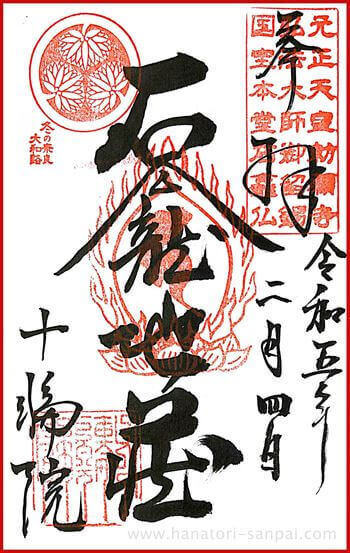 元正天皇勅願寺
弘法大師御留錫
国宝本堂石龕仏
奉拝
令和五年
二月四日
石龕地蔵
冬の奈良
大和路
十輪院
www.hanatori-sanpai.com